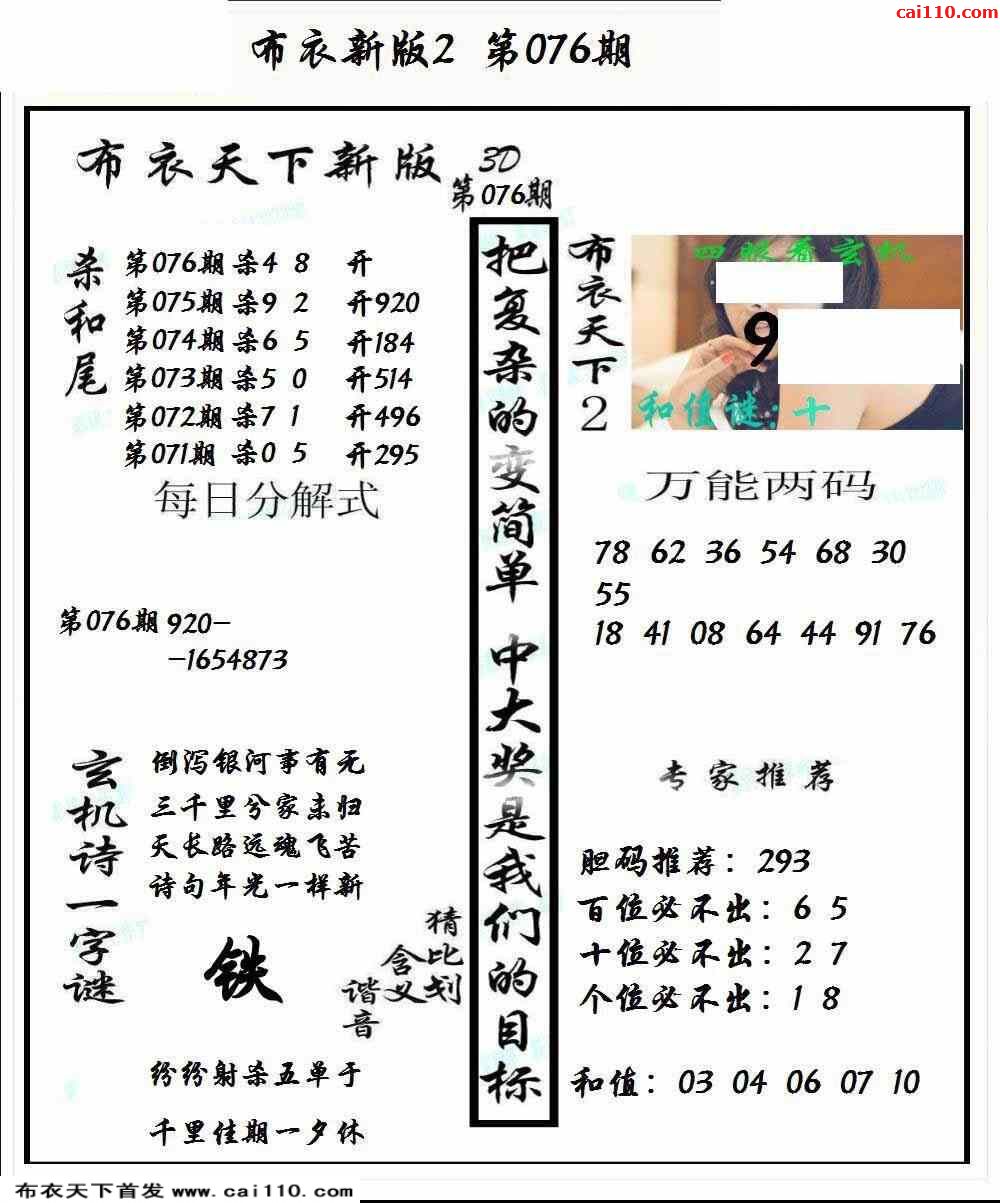 cai110.com
布衣新版2 第076期
布衣天下新版
3D
第076期
杀和尾
第076期 杀4 8 开
第075期 杀9 2 开920
第074期 杀6 5 开184
第073期 杀5 0 开514
第072期 杀7 1 开496
第071期 杀0 5 开295
每日分解式
第076期 920-
-1654873
玄机诗一字谜
倒泻银河事有无
三千里兮家未归
天长路远魂飞苦
诗句年光一样新
铁
猜比划
含义
谐音
纷纷射杀五单于
千里佳期一夕休
把复杂的变简单 中大奖是我们的目标
布衣天下2
四眼看玄机
9
和值谜:十
万能两码
78 62 36 54 68 30
55
18 41 08 64 44 91 76
专家推荐
胆码推荐: 293
百位必不出: 6 5
十位必不出: 2 7
个位必不出: 1 8
和值: 03 04 06 07 10
布衣天下首发 www.cai110.com